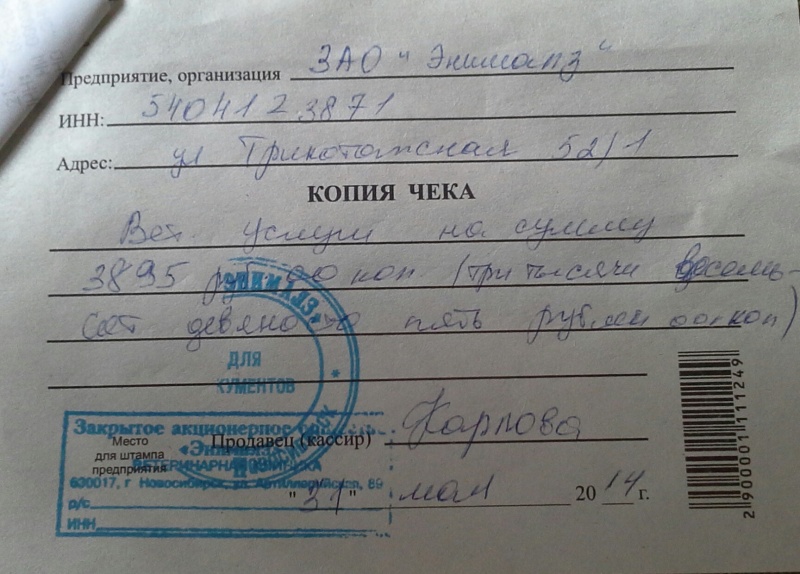 Предприятие, организация ЗАО "Энимапз"
ИНН: 5404123871
Адрес: ул Трикотажная 52/1
КОПИЯ ЧЕКА
Вет. услуги на сумму
3895 руб 00 коп (три тысячи восемь-
сот девяносто пять рублей 00 коп)
ДЛЯ
КУМЕНТОВ
Закрытое акционерное
Место
для штампа
предприятия
Продавец (кассир) Карпова
630017, г Новосибирск, ул. Артиллерийская, 89
р/с
ИНН
"31" мая 2014 г.
2 900001 111249